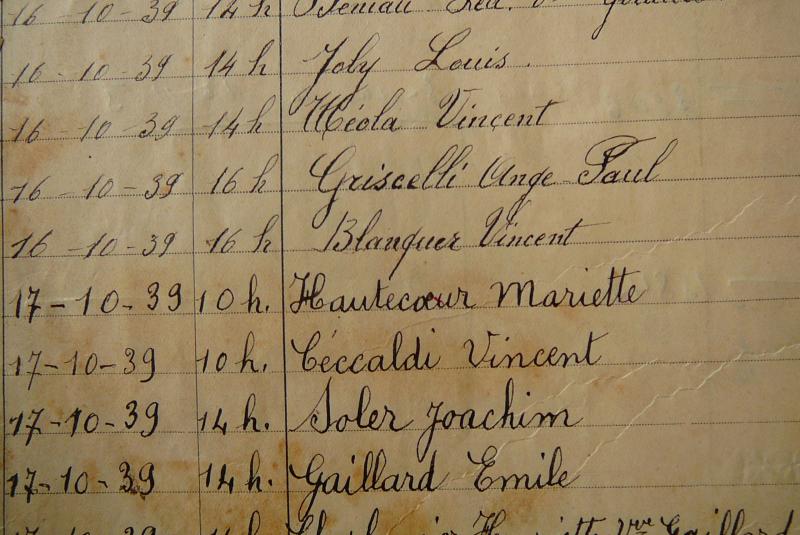 16-10-39 14h
16-10-39 14h Joly Louis.
16-10-39 14h Méola Vincent
16-10-39 16h Griscelli Ange-Paul
16-10-39 16h Blanquer Vincent
17-10-39 10h. Hautecœur Mariette
17-10-39 10h. Céccaldi Vincent
17-10-39 14h. Soler Joachim
17-10-39 14h. Gaillard Emile
17-10-39 Vve Gaillard